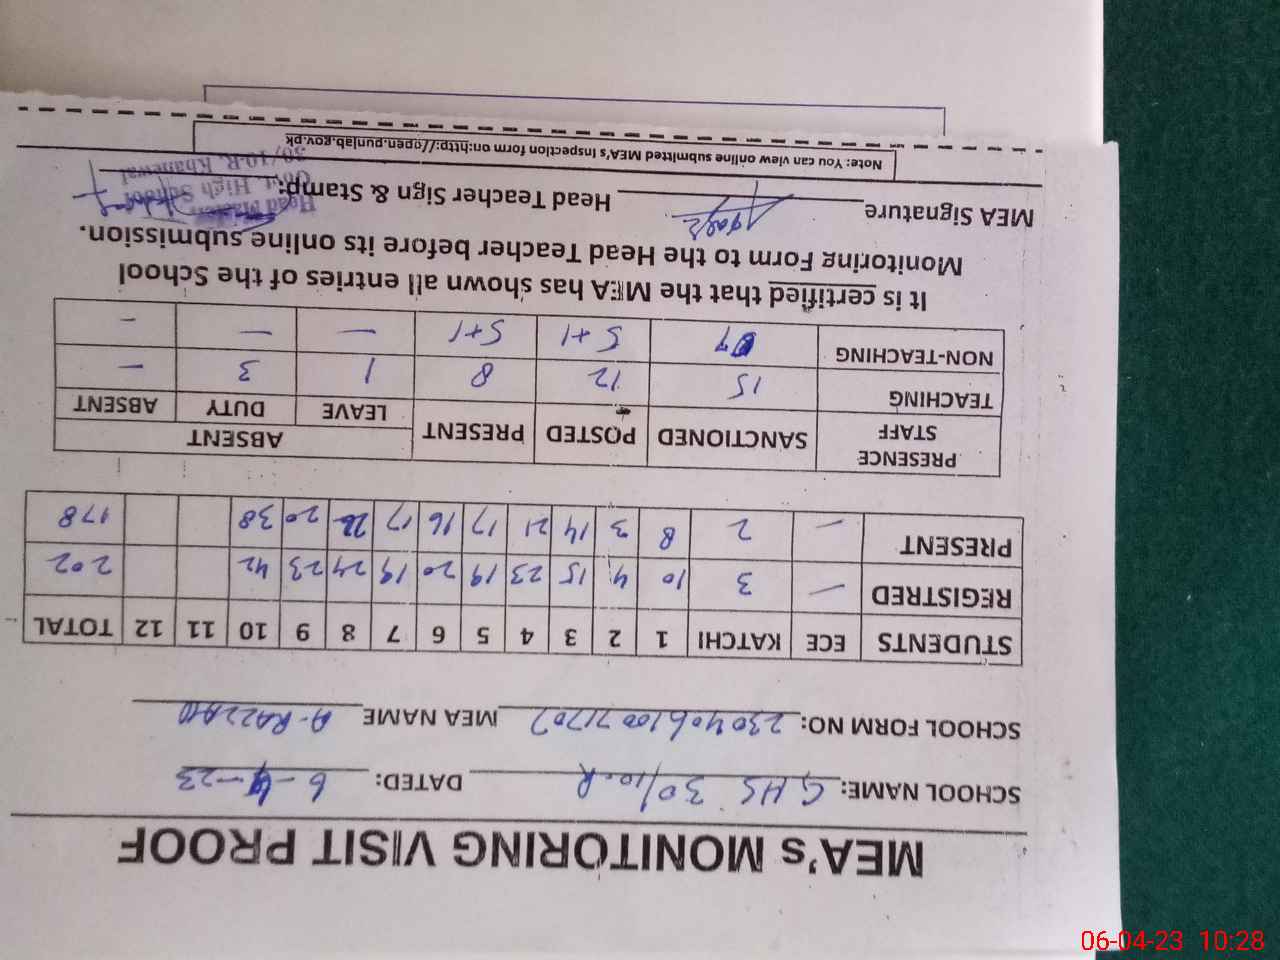 MEA's MONITORING VISIT PROOF
SCHOOL NAME: GHS 30/10-R DATED: 6-4-23
SCHOOL FORM NO: 230406100 71707 MEA NAME A-RAZZAQ
STUDENTS ECE KATCHI 1 2 3 4 5 6 7 8 9 10 11 12 TOTAL
REGISTRED — 3 10 4 15 23 19 20 19 24 23 42 202
PRESENT — 2 8 3 14 21 17 16 17 22 20 38 178
PRESENCE STAFF SANCTIONED POSTED PRESENT ABSENT
LEAVE DUTY ABSENT
TEACHING 15 12 8 1 3 —
NON-TEACHING 7 5+1 5+1 — — —
It is certified that the MEA has shown all entries of the School
Monitoring Form to the Head Teacher before its online submission.
MEA Signature Head Teacher Sign & Stamp:
Head Master
Govt. High School
30/10-R, Khanewal
Note: You can view online submitted MEA's Inspection form on:http://open.punjab.gov.pk
06-04-23 10:28